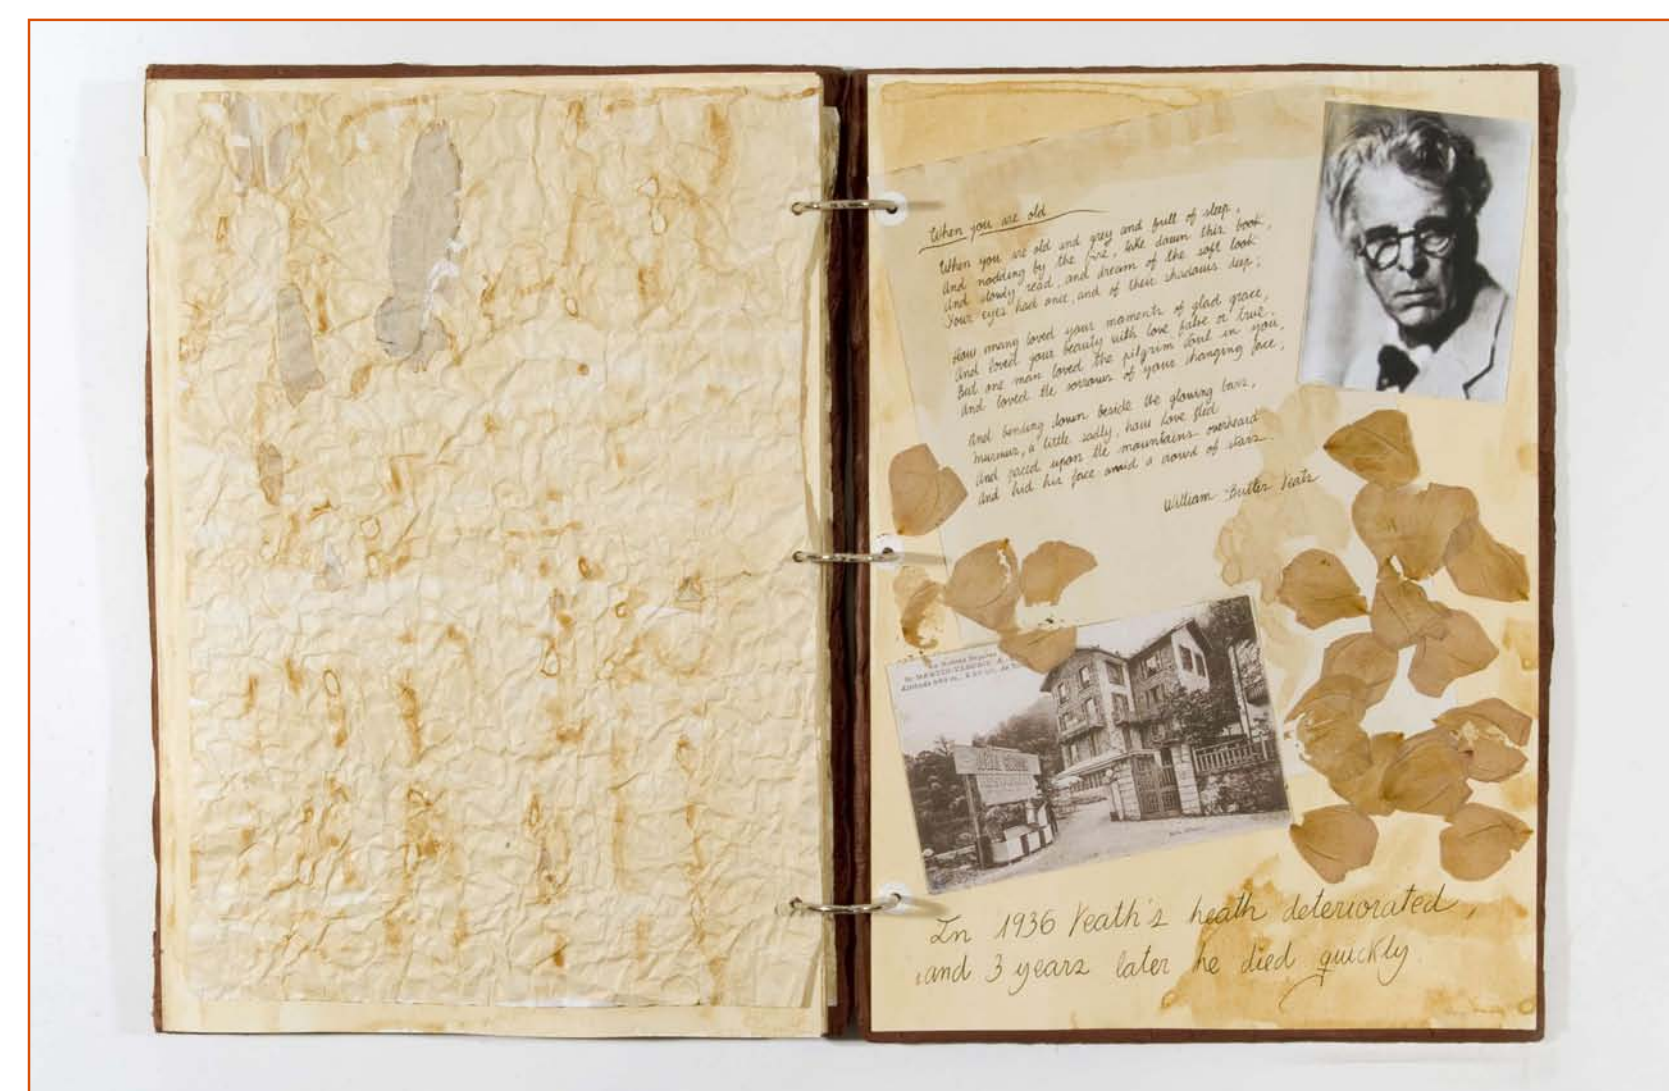 When you are old
When you are old and grey and full of sleep,
And nodding by the fire, take down this book,
And slowly read, and dream of the soft look
Your eyes had once, and of their shadows deep;
How many loved your moments of glad grace,
And loved your beauty with love false or true.
But one man loved the pilgrim soul in you,
And loved the sorrows of your changing face,
And bending down beside the glowing bars,
Murmur, a little sadly, how Love fled
And paced upon the mountains overhead
And hid his face amid a crowd of stars.
William Butler Yeats
In 1936 Yeath's heath deteriorated,
and 3 years later he died quickly